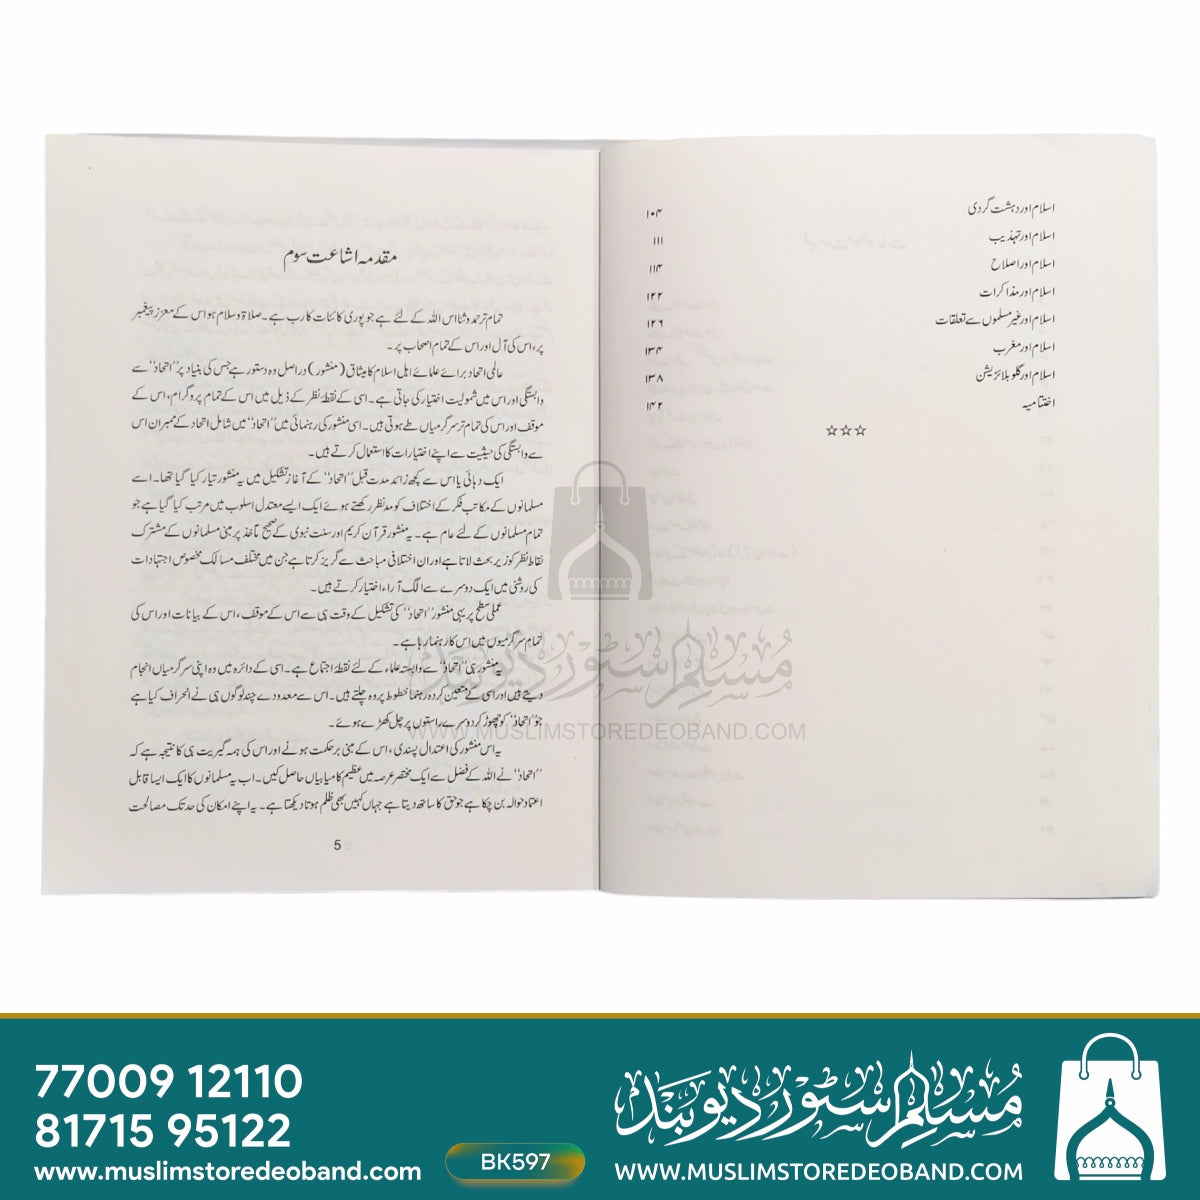 اسلام اور دہشت گردی ۱۰۴
اسلام اور تہذیب ۱۱۱
اسلام اور اصلاح ۱۱۴
اسلام اور مذاکرات ۱۲۲
اسلام اور غیر مسلموں سے تعلقات ۱۲۶
اسلام اور مغرب ۱۳۴
اسلام اور گلوبلائزیشن ۱۳۸
اختتامیہ ۱۴۲
☆☆☆
مقدمہ اشاعت سوم
تمام تر حمد و ثنا اس اللہ کے لئے ہے جو پوری کائنات کا رب ہے۔ صلاۃ و سلام ہو اس کے معزز پیغمبر
پر، اس کی آل اور اس کے تمام اصحاب پر۔
عالمی اتحاد برائے علمائے اہل اسلام کا میثاق (منشور) دراصل وہ دستور ہے جس کی بنیاد پر "اتحاد" سے
وابستگی اور اس میں شمولیت اختیار کی جاتی ہے۔ اسی کے نقطۂ نظر کے ذیل میں اس کے تمام پروگرام، اس کے
موقف اور اس کی تمام تر سرگرمیاں طے ہوتی ہیں۔ اسی منشور کی رہنمائی میں "اتحاد" میں شامل اتحاد کے ممبران اس
سے وابستگی کی حیثیت سے اپنے اختیارات کا استعمال کرتے ہیں۔
ایک دہائی یا اس سے کچھ زائد مدت قبل "اتحاد" کے آغاز تشکیل میں یہ منشور تیار کیا گیا تھا۔ اسے
مسلمانوں کے مکاتب فکر کے اختلاف کو مدنظر رکھتے ہوئے ایک ایسے معتدل اسلوب میں مرتب کیا گیا ہے جو
تمام مسلمانوں کے لئے عام ہے۔ یہ منشور قرآن کریم اور سنت نبوی کے صحیح مآخذ پر مبنی مسلمانوں کے مشترک
نقاط نظر کو زیر بحث لاتا ہے اور ان اختلافی مباحث سے گریز کرتا ہے جن میں مختلف مسالک مخصوص اجتہادات
کی روشنی میں ایک دوسرے سے الگ آراء اختیار کرتے ہیں۔
عملی سطح پر یہی منشور "اتحاد" کی تشکیل کے وقت ہی سے اس کے موقف، اس کے بیانات اور اس کی
تمام سرگرمیوں میں اس کا رہنما رہا ہے۔
یہ منشور ہی "اتحاد" سے وابستہ علماء کے لئے نقطۂ اجتماع ہے۔ اسی کے دائرہ میں وہ اپنی سرگرمیاں انجام
دیتے ہیں اور اسی کے متعین کردہ رہنما خطوط پر وہ چلتے ہیں۔ اس سے معدودے چند لوگوں ہی نے انحراف کیا ہے
جو "اتحاد" کو چھوڑ کر دوسرے راستوں پر چل کھڑے ہوئے۔
یہ اس منشور کی اعتدال پسندی، اس کے مبنی بر حکمت ہونے اور اس کی ہمہ گیریت ہی کا نتیجہ ہے کہ
"اتحاد" نے اللہ کے فضل سے ایک مختصر عرصہ میں عظیم کامیابیاں حاصل کیں۔ اب یہ مسلمانوں کا ایک ایسا قابل
اعتماد حوالہ بن چکا ہے جو حق کا ساتھ دیتا ہے جہاں کہیں بھی ظلم ہوتا دیکھتا ہے۔ یہ اپنے امکان کی حد تک مصالحت
5
مسلم سٹور دیوبند
WWW.MUSLIMSTOREDEOBAND.COM
77009 12110
81715 95122
www.muslimstoredeoband.com
BK597
مسلم سٹور دیوبند
WWW.MUSLIMSTOREDEOBAND.COM